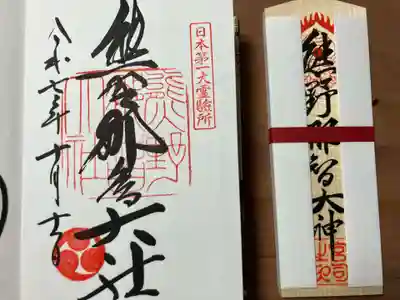 日本第一大霊験所
熊野那智大社
令和七年十月
熊野那智大神
宮司之印